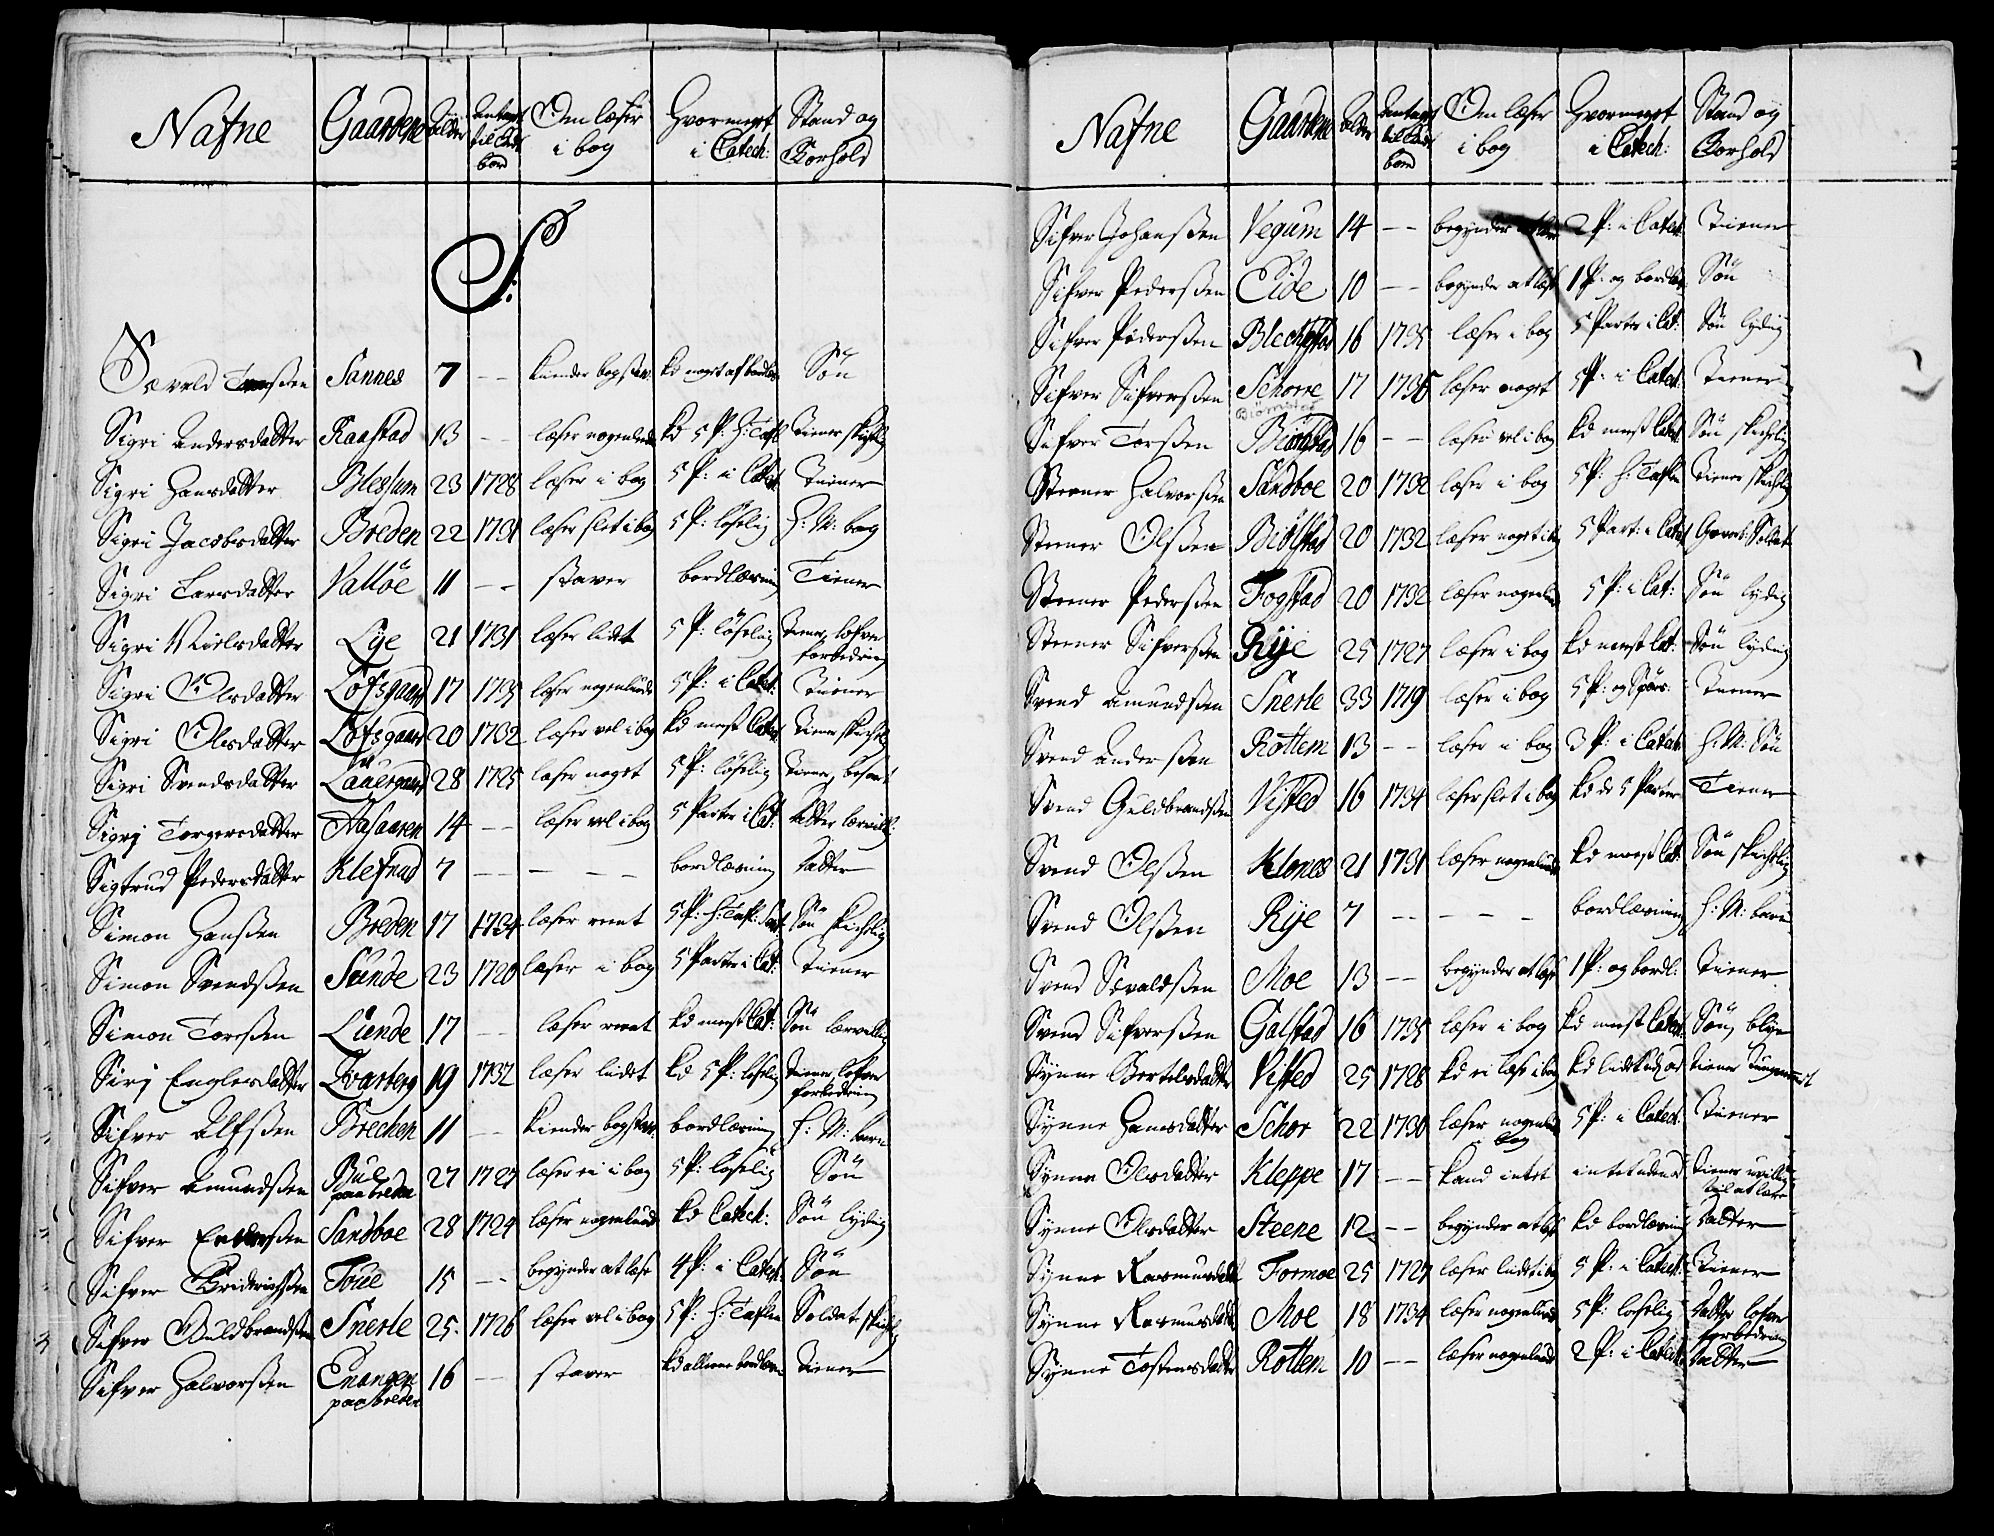 Nafne Gaardene Alder Antagt til Guds bord Om læser i bog Hvormeget i Catech: Stand og Forhold
S:
Sævald Torsßen Sannes 7 -- kiender bogstav: kd noget af bordlæs Søn
Sigri Andersdatter Raastad 13 -- læser nogenlunde kd 5 P: H: Tafl Tiener skichelig
Sigri Hansdatter Blessum 23 1728 læser i bog 5 P: i Catech Tiener
Sigri Jacobsdatter Breden 22 1731 læser slet i bog 5 P: løselig H: M: bog
Sigri Larsdatter Valløe 11 -- staver bordlæsning Tiener
Sigri Nielsdatter Lye 21 1731 læser lidt 5 P: løselig Tiener, lofver forbedring
Sigri Olsdatter Lofsgaard 17 1735 læser nogenlunde 5 P: i Catech: Tiener
Sigri Olsdatter Lofsgaard 20 1732 læser vel i bog kd mest Catech Tiener skichelig
Sigri Svendsdatter Lauersgaard 28 1725 læser noget 5 P: løselig Tiener,
Sigrj Torgersdatter Aasaaren 14 -- læser vel i bog 5 Parter i Cat: datter lærvillig:
Sigtrud Pedersdatter Klefstad 7 -- - - - bordlæsning datter
Simon Hansßen Breden 17 1734 læser reent 5 P: H: Tafl: Søn skichelig
Simon Svendsßen Sunde 23 1720 læser i bog 5 Parter i Cat: Tiener
Simon Torsßen Lunde 17 -- læser reent kd mest Cat: Søn lærvillig
Sirj Englesdatter Qvarberg 19 1732 læser lidet kd 5 P: løselig Tiener, lofver forbedring
Sifver Alfsßen Brechen 11 -- kiender bogstav: bordlæsning H: M: barn
Sifver Amundsßen Bue paa breden 27 1727 læser ei i bog 5 P: løselig Søn
Sifver Sandboe 28 1724 læser nogenlunde kd Catech: Søn lydig
Sifver Friderichsßen Toue 15 -- begynder at læse 4 P: i Catech: Søn
Sifver Guldbrandsßen Snerle 25 1726 læser vel i bog 5 P: H: Taflen Soldat skichelig
Sifver Halvorsßen Enangen paa breden 16 -- staver kd allene bordlæsn Tiener
Nafne Gaardene Alder Antagt til Guds bord Om læser i bog Hvormeget i Catech: Stand og Forhold
Sifver Johansßen Vegum 14 -- begynder at læse 2 P: i Catech: Tiener
Sifver Pedersßen Eide 10 -- begynder at læse 1 P: og bordlæs Søn
Sifver Pedersßen Blechestad 16 1735 læser i bog 5 Parter i Cat: Søn lydig
Sifver Sifversßen Schorre 17 1735 læser noget 5 P: i Catech: Tiener
Biørnstad
Sifver Torsßen 16 -- læser vel i bog kd mest Catech Søn skichelig
Steener Halvorsßen Sandboe 20 1732 læser i bog 5 P: H: Taflen Tiener skichelig
Steener Olsßen Biølstad 20 1732 læser noget i bog 5 Part: i Catech Soldat
Steener Pedersßen Fogstad 20 1732 læser nogenlun 5 P: i Cat: Søn lydig
Steener Sifversßen Rye 25 1727 læser i bog kd mest Cat: Søn lydig
Svend Amundsßen Snerle 33 1719 læser i bog 5 P: og Spørs: Tiener
Svend Andersßen Rottem 13 -- læser i bog 3 P: i Catech: H: M: Søn
Svend Guldbrandsßen Visted 16 1734 læser slet i bog kd de 5 Parter Tiener
Svend Olsßen Klones 21 1731 læser nogenlunde kd mest Cat: Søn skichelig
Svend Olsßen Rye 7 -- - - - bordlæsning H: M: barn
Svend Sævaldsßen Moe 13 -- begynder at læse 1 P: og bordl: Tiener
Svend Sifversßen Galstad 16 1735 læser i bog kd mest Catech: Søn,
Synne Bertelsdatter Visted 25 1728 kd ei læse i bog Tiener
Synne Hansdatter Schor 22 1730 læser nogenlun i bog 5 P: i Catech: Tiener
Synne Olsdatter Kleppe 17 -- kand intet intet udenad Tiener uvillig til at lære
Synne Olsdatter Steene 12 -- begynder at læse kd bordlæsning datter
Synne Rasmusdatter Formoe 25 1727 læser lidet i bog 5 P: i Catech: Tiener
Synne Rasmusdatter Moe 18 1734 læser nogenlunde 5 P: løselig datter lofver forbedring
Synne Tostensdatter Rottem 10 -- læser nogenlunde 2 P: i Catech: datter